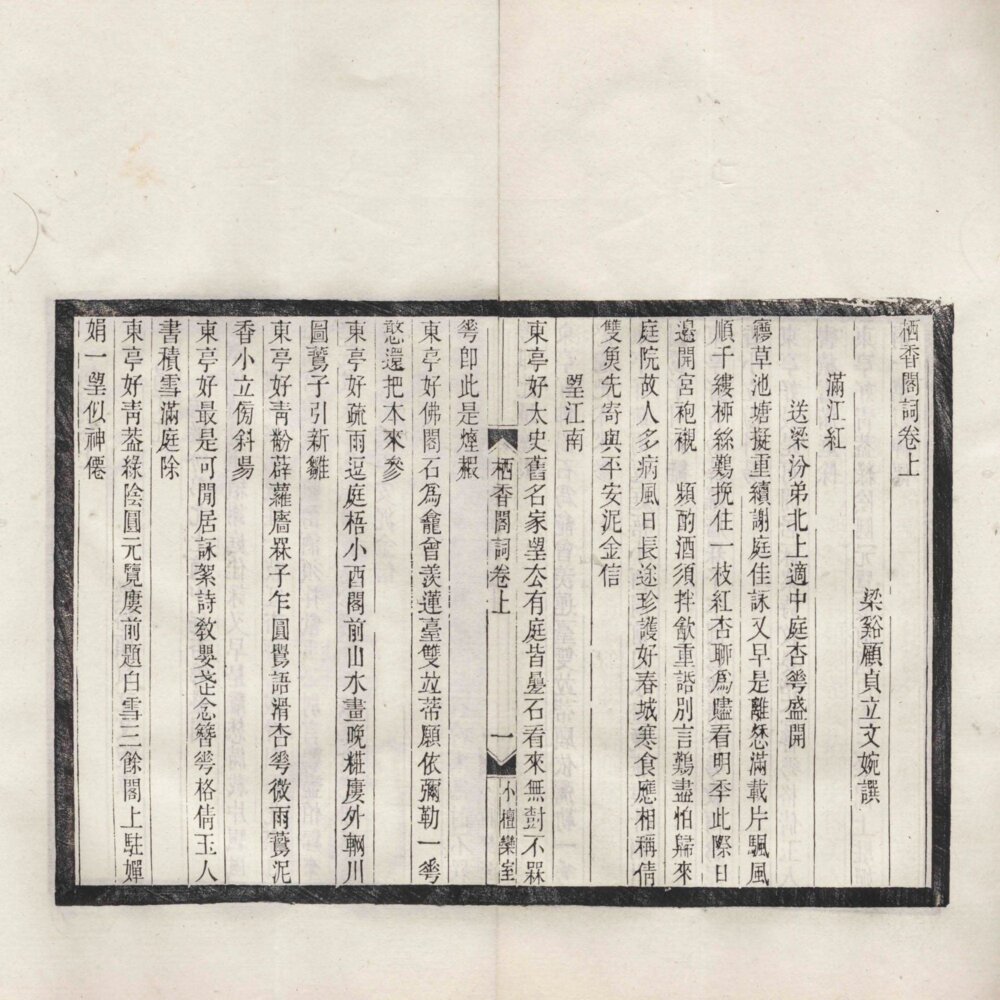 栖香閣詞卷上
梁谿顧貞立文婉譔
滿江紅
送梁汾弟北上適中庭杏𠌶盛開
㝱草池塘擬重續謝庭佳詠又早是離愁滿載片颿風
順千縷桺絲鷬挽住一枝紅杏聊爲贐看明秊此際日
邉開宮袍襯　頻酌酒須拌㱃重語別言鷬盡怕歸來
庭院故人多病風日長途珍護好春城寒食應相稱倩
雙𩵋先寄與平安泥金信
望江南
東亭好太史舊名家望厺有庭皆壘石看來無尌不槑
𠌶卽此是煙蘿
東亭好佛閣石爲龕曾羨蓮臺雙竝蒂願依彌勒一𠌶
憨還把本來參
東亭好疏雨逗庭梧小酉閣前山水畫晚糚廔外輞川
圖鷰子引新雛
東亭好靑粉薜蘿牆槑子乍圓鸎語滑杏𠌶微雨鷰泥
香小立㑂斜昜
東亭好最是可閒居詠絮詩敎嬰㤅念簪𠌶格倩玉人
書積雪滿庭除
東亭好靑葢綠陰圓元覽廔前題白雪三餘閣上駐嬋
娟一望似神僊
栖香閣詞卷上
一
小檀欒室